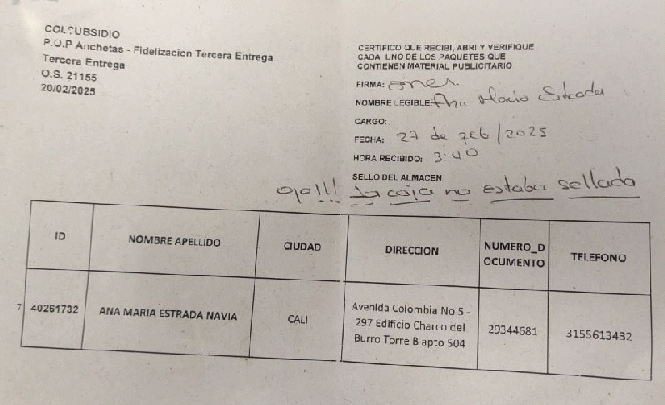 COLSUBSIDIO
P.O.P Anchetas - Fidelizacion Tercera Entrega
Tercera Entrega
O.S. 21155
20/02/2025
CERTIFICO QUE RECIBI, ABRI Y VERIFIQUE
CADA UNO DE LOS PAQUETES QUE
CONTIENEN MATERIAL PUBLICITARIO
FIRMA:
NOMBRE LEGIBLE: Ana Maria Estrada
CARGO:
FECHA: 27 de feb/2025
HORA RECIBIDO: 3:40
SELLO DEL ALMACEN
Ojo!!! la caja no estaba sellada
ID NOMBRE APELLIDO CIUDAD DIRECCION NUMERO_D
OCUMENTO TELEFONO
7 40261732 ANA MARIA ESTRADA NAVIA CALI Avenida Colombia No 5 -
297 Edificio Charco del
Burro Torre B apto 504 3155613432